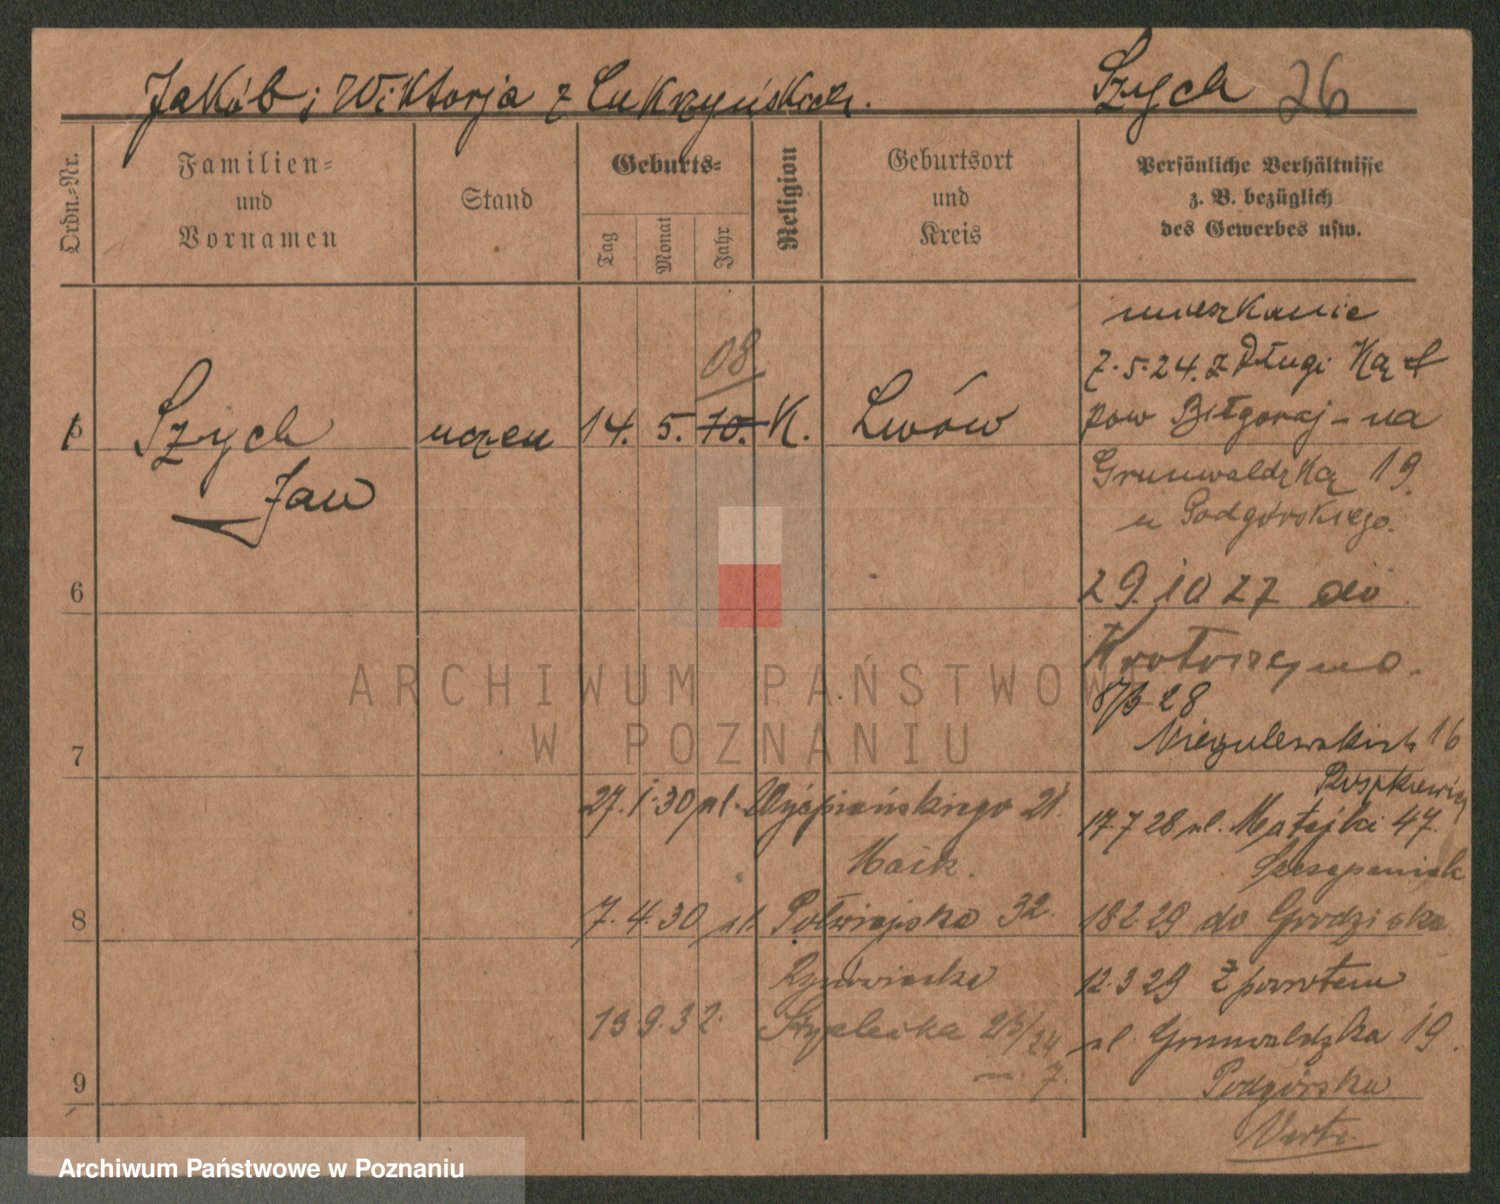 Jakób i Wiktorja z Łukrzyńskich.
Szych 26
Ordn.=Nr.
Familien=
und
Vornamen
Stand
Geburts=
Tag
Monat
Jahr
Religion
Geburtsort
und
Kreis
Persönliche Verhältnisse
z. B. bezüglich
des Gewerbes usw.
Szych
Jan
uczeń
14. 5. 10. 08
K.
Lwów
mieszkanie
7.5.24. z Długi Kąt
pow Biłgoraj – na
Grunwaldzką 19.
u Podgórskiego.
29.10 27 do
Krotoszyna.
8/3 28
Niegolewskich 16
17.7 28 ul. Matejki 47.
Szczepaniak
18 2 29 do Grodziska
12.3 29 z powrotem
ul. Grunwaldzka 19.
Podgórska
Verte
6
7
27.1.30 ul. Wyspiańskiego 21.
8
7.4.30 ul. Półwiejska 32.
13 9.32. Strzelecka 23/24
7.
9
ARCHIWUM PAŃSTWOWE
W POZNANIU
Archiwum Państwowe w Poznaniu